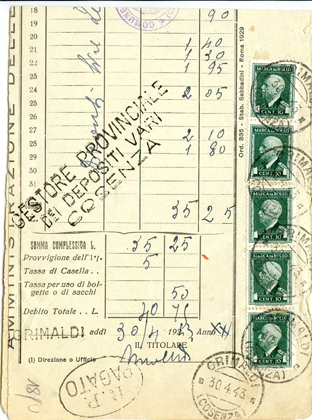 COMUNE
18 90
19
20 1 40
21 1 30
22 1 95
23
24 2 05
25
26
27
28 2 10
29 1 80
30
31
35 25
GESTORE PROVINCIALE
DEI DEPOSITI VARI
COSENZA
AMMINISTRAZIONE DELLE
SOMMA COMPLESSIVA L. 35 25
Provvigione dell'1%. 5
Tassa di Casella . .
Tassa per uso di bol-
gette o di sacchi 50
Debito Totale . . L.
GRIMALDI addì 30/4 1943 Anno XXI
IL TITOLARE
(1) Direzione o Ufficio
R.P.
PAGATO
GRIMALDI
30.4.43
(COSENZA)
Ord. 335 - Stab. Sabbadini - Roma 1929
MARCA DA BOLLO
CENT. 10
MARCA DA BOLLO
CENT. 10
MARCA DA BOLLO
CENT. 10
MARCA DA BOLLO
CENT. 10
MARCA DA BOLLO
CENT. 10